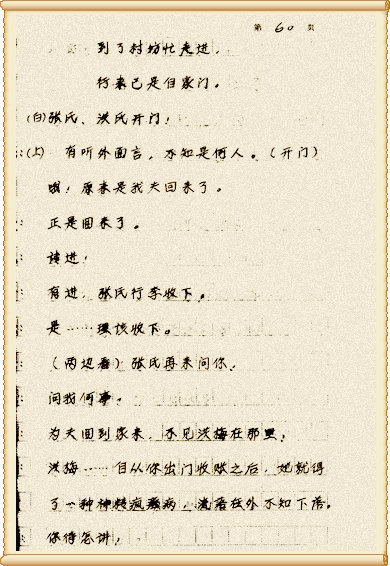 第 60 页
到了村坊忙走进,
行来已是自家门。
(白)张氏、洪氏开门!
(上) 有听外面言,不知是何人。(开门)
哦!原来是我夫回来了。
正是回来了。
请进!
有进,张氏行李收下。
是……理该收下。
(两边看)张氏再来问你,
问我何事。
为夫回到家来,不见洪梅在那里,
洪梅……自从你出门收账之后,她就得
了一种神经疯癫病,流落在外不知下落。
你待怎讲,